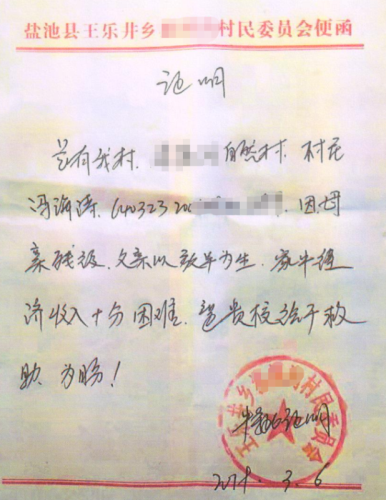 盐池县王乐井乡 村民委员会便函
证明
兹有我村 自然村 村民
冯海涛 640323 20 因母
亲残疾 父亲以放羊为生 家中经
济收入十分困难 望贵校给予救
助 为盼！
王乐井乡 村民委员会
特此证明
2019.3.6